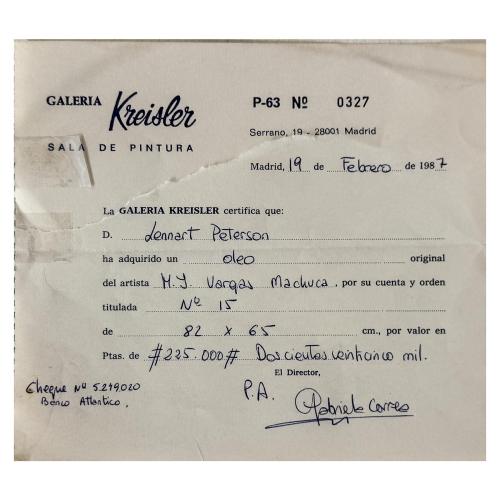 GALERIA Kreisler
SALA DE PINTURA
P-63 Nº 0327
Serrano, 19 - 28001 Madrid
Madrid, 19 de Febrero de 1987
La GALERIA KREISLER certifica que:
D. Lennart Peterson
ha adquirido un oleo original
del artista M.J. Vargas Machuca, por su cuenta y orden
titulada Nº 15
de 82 x 65 cm., por valor en
Ptas. de #225.000# Doscientas veinticinco mil.
El Director,
Cheque Nº 5.249.020
Banco Atlantico.
P.A.
Gabriela Correa